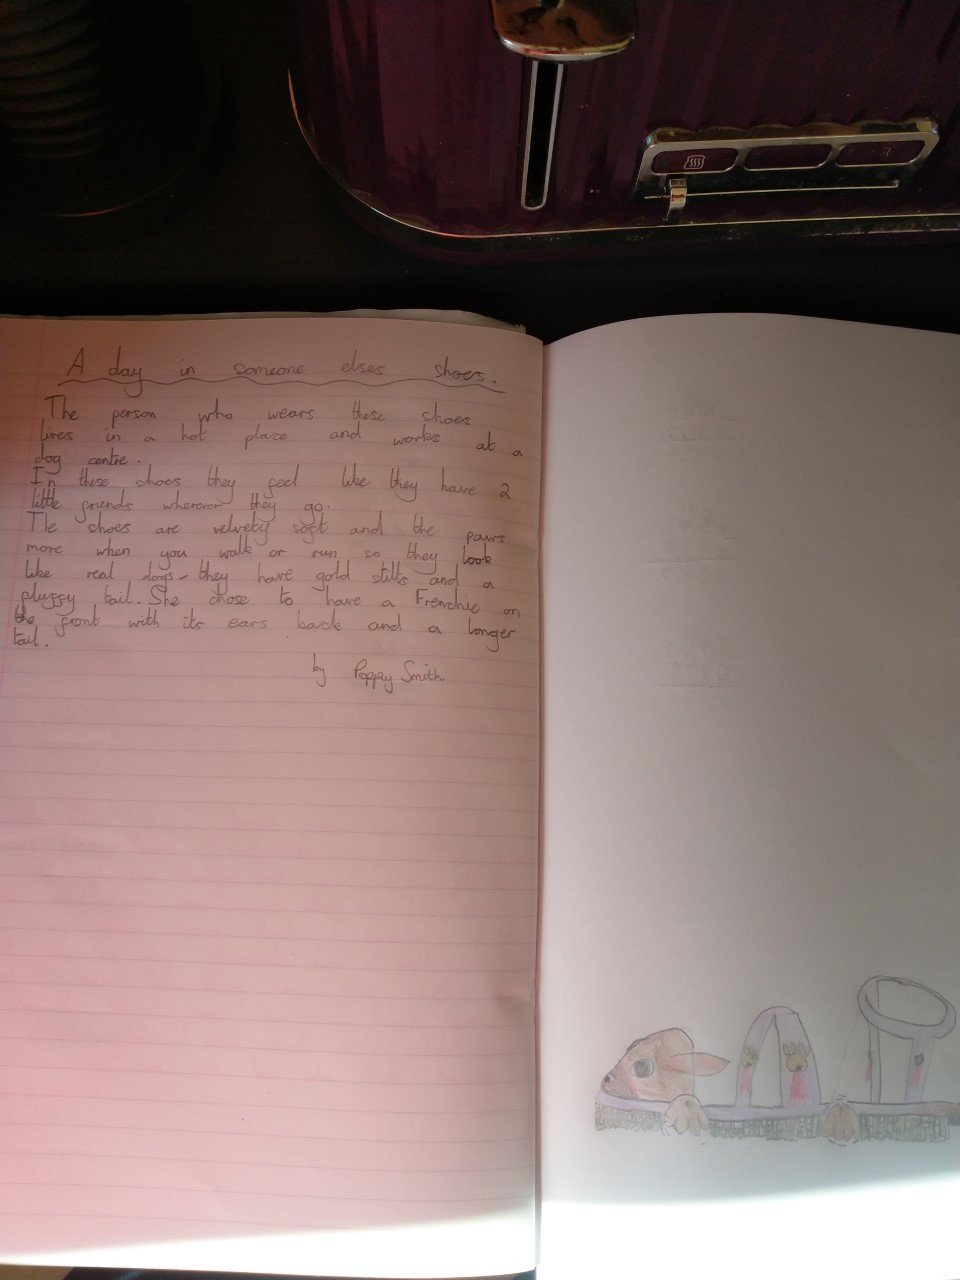 A day in someone elses shoes.
The person who wears these shoes
lives in a hot place and works at a
dog centre.
In these shoes they feel like they have 2
little friends wherever they go.
The shoes are velvety soft and the paws
move when you walk or run so they look
like real dogs - they have gold stilts and a
fluffy tail. She chose to have a Frenchie on
the front with its ears back and a longer
tail.
by Poppy Smith